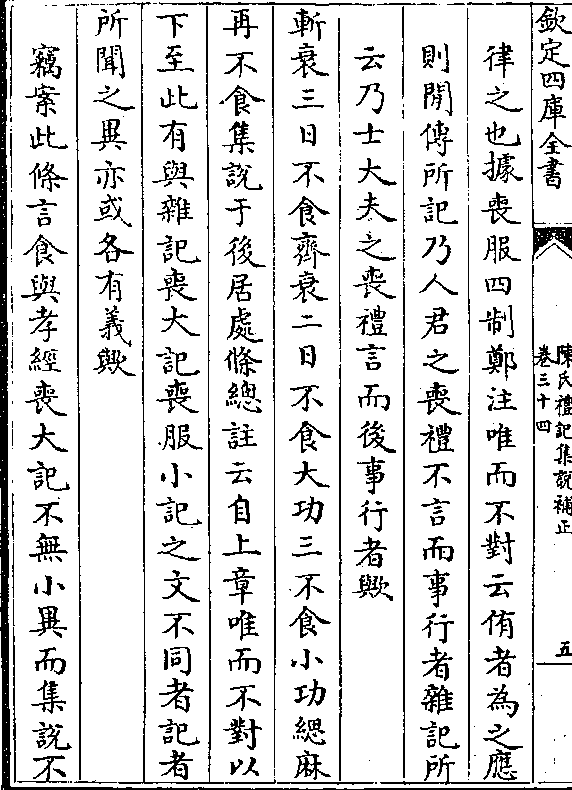 欽定四庫全書
陳氏禮記集說補正
卷三十四
五
律之也據喪服四制鄭注唯而不對云侑者為之應
則閒傳所記乃人君之喪禮不言而事行者雜記所
云乃士大夫之喪禮言而後事行者歟
斬衰三日不食齊衰二日不食大功三不食小功緦麻
再不食集說于後居處條總註云自上章唯而不對以
下至此有與雜記喪大記喪服小記之文不同者記者
所聞之異亦或各有義歟
竊案此條言食與孝經喪大記不無小異而集說不